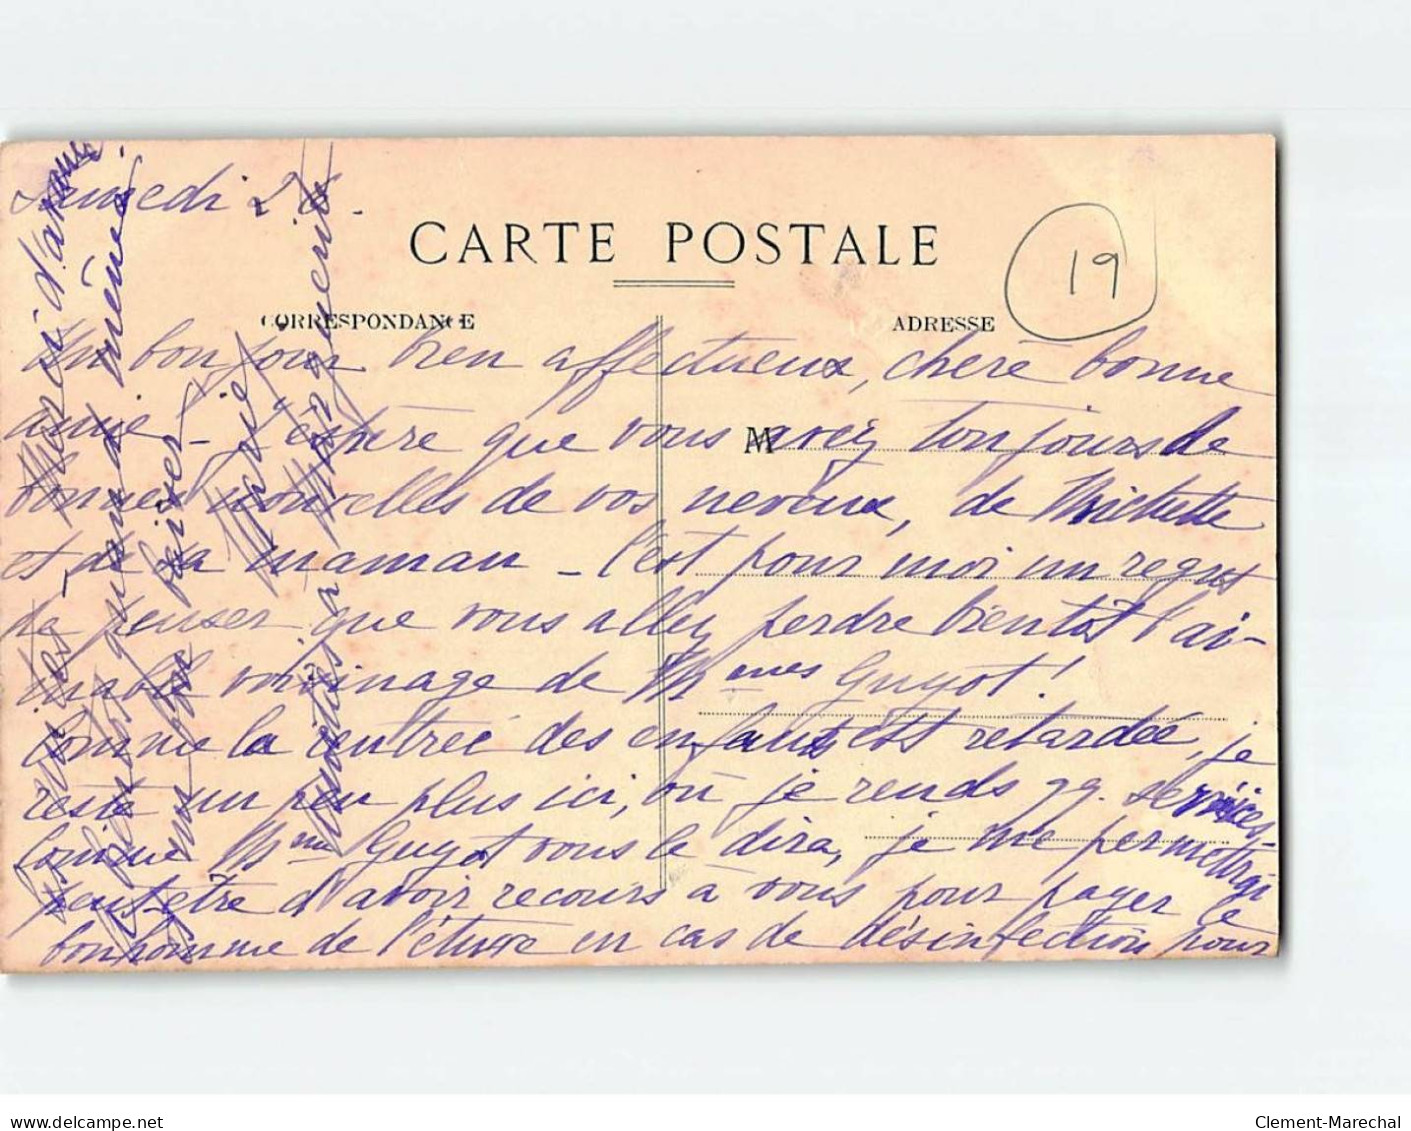 Samedi 26.
CARTE POSTALE
19
CORRESPONDANCE
ADRESSE
M
Un bonjour bien affectueux, chère bonne
amie - J'espère que vous avez toujours de
bonnes nouvelles de vos neveux, de Michette
et de sa maman - C'est pour moi un regret
de penser que vous allez perdre bientôt l'ai-
mable voisinage de Mmes Guyot!
Comme la rentrée des enfants est retardée, je
reste un peu plus ici, où je rends qq. services.
Comme Mme Guyot vous le dira, je me permettrai
peut-être d'avoir recours à vous pour payer le
bonhomme de l'étuve en cas de désinfection pour
Marguerite
Marie
bons baisers
mêmes
Merci d'avance.
Clement-Marechal